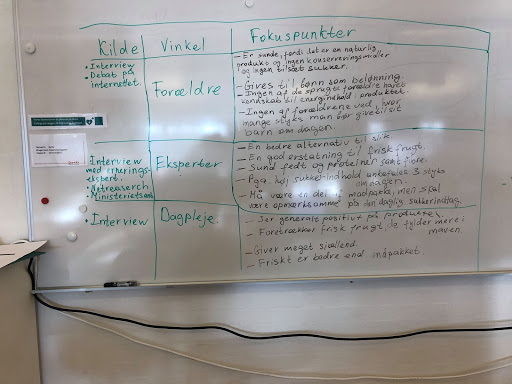 Kilde
Vinkel
Fokuspunkter
• Interview
• Debat på
internettet.
Forældre
- Er sunde, fordi det er en naturlig
produkt og ingen konserveringsmidler
og ingen tilsat sukker.
- Gives til børn som belønning.
- Ingen af de spurgte forældre havde
kendskab til energiindhold i produktet.
- Ingen af forældrene ved, hvor
mange styks man bør give til sit
barn om dagen.
• Interview
med ernærings-
ekspert.
• Netresearch
• Ministeriets
Eksperter
- En bedre alternativ til slik
- En god erstatning til frisk frugt.
- Sund fedt og proteiner samt fibre.
- Pga. høj sukker-indhold anbefales 3 styks
om dagen.
- Må være en del i madpakke, men skal
være opmærksomme på den daglig sukkerindtag.
• Interview
Dagpleje.
- Ser generelt positivt på produktet.
- Foretrækker frisk frugt, de fylder mere i
maven.
- Giver meget sjældent
- Friskt er bedre end indpakket.